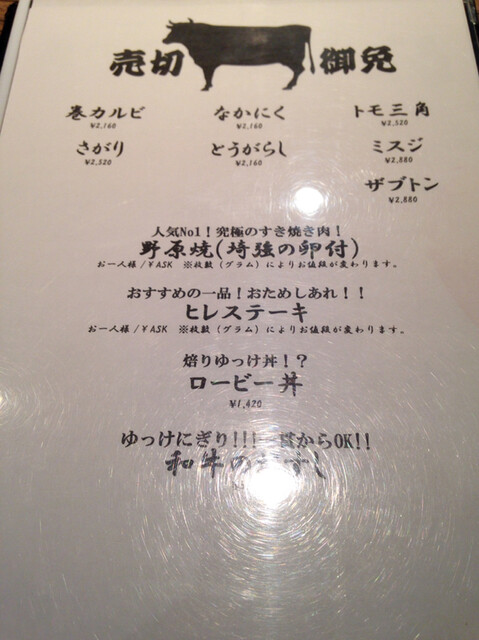 売切 御免
巻カルビ なかにく トモ三角
¥2,160 ¥2,160 ¥2,520
さがり とうがらし ミスジ
¥2,520 ¥2,160 ¥2,880
ザブトン
¥2,880
人気No1！究極のすき焼き肉！
野原焼(埼強の卵付)
お一人様/¥ASK ※枚数(グラム)によりお値段が変わります。
おすすめの一品！おためしあれ！！
ヒレステーキ
お一人様/¥ASK ※枚数(グラム)によりお値段が変わります。
焙りゆっけ丼！？
ロービー丼
¥1,420
ゆっけにぎり!!! 貫からOK!!
和牛の